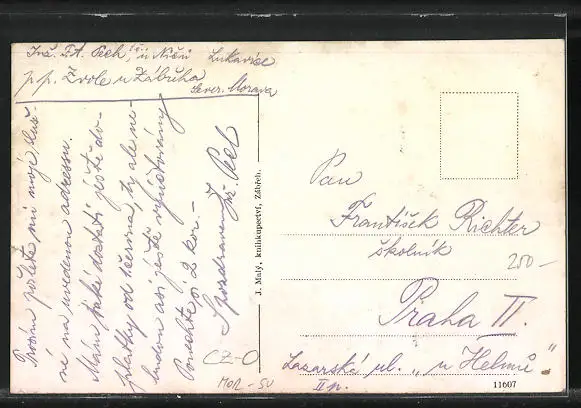 Inž. Fr. Pech, u Nižní Lukavice
p.p. Zvole u Zábřeha
sever. Morava
Prosím pošlete mi moje služ-
né na uvedenou adressu.
Mám také dostati ještě do-
platky od června, ty ale ne-
budou asi ještě
Ponechte si 2 kor. –
S pozdravem Inž. Pech
J. Malý, knihkupectví, Zábřeh.
Pan
František Richter
školník
200–
Praha II.
Lazarská ul. „u Helmů"
II p.
CZ-O
MOR-SU
11607